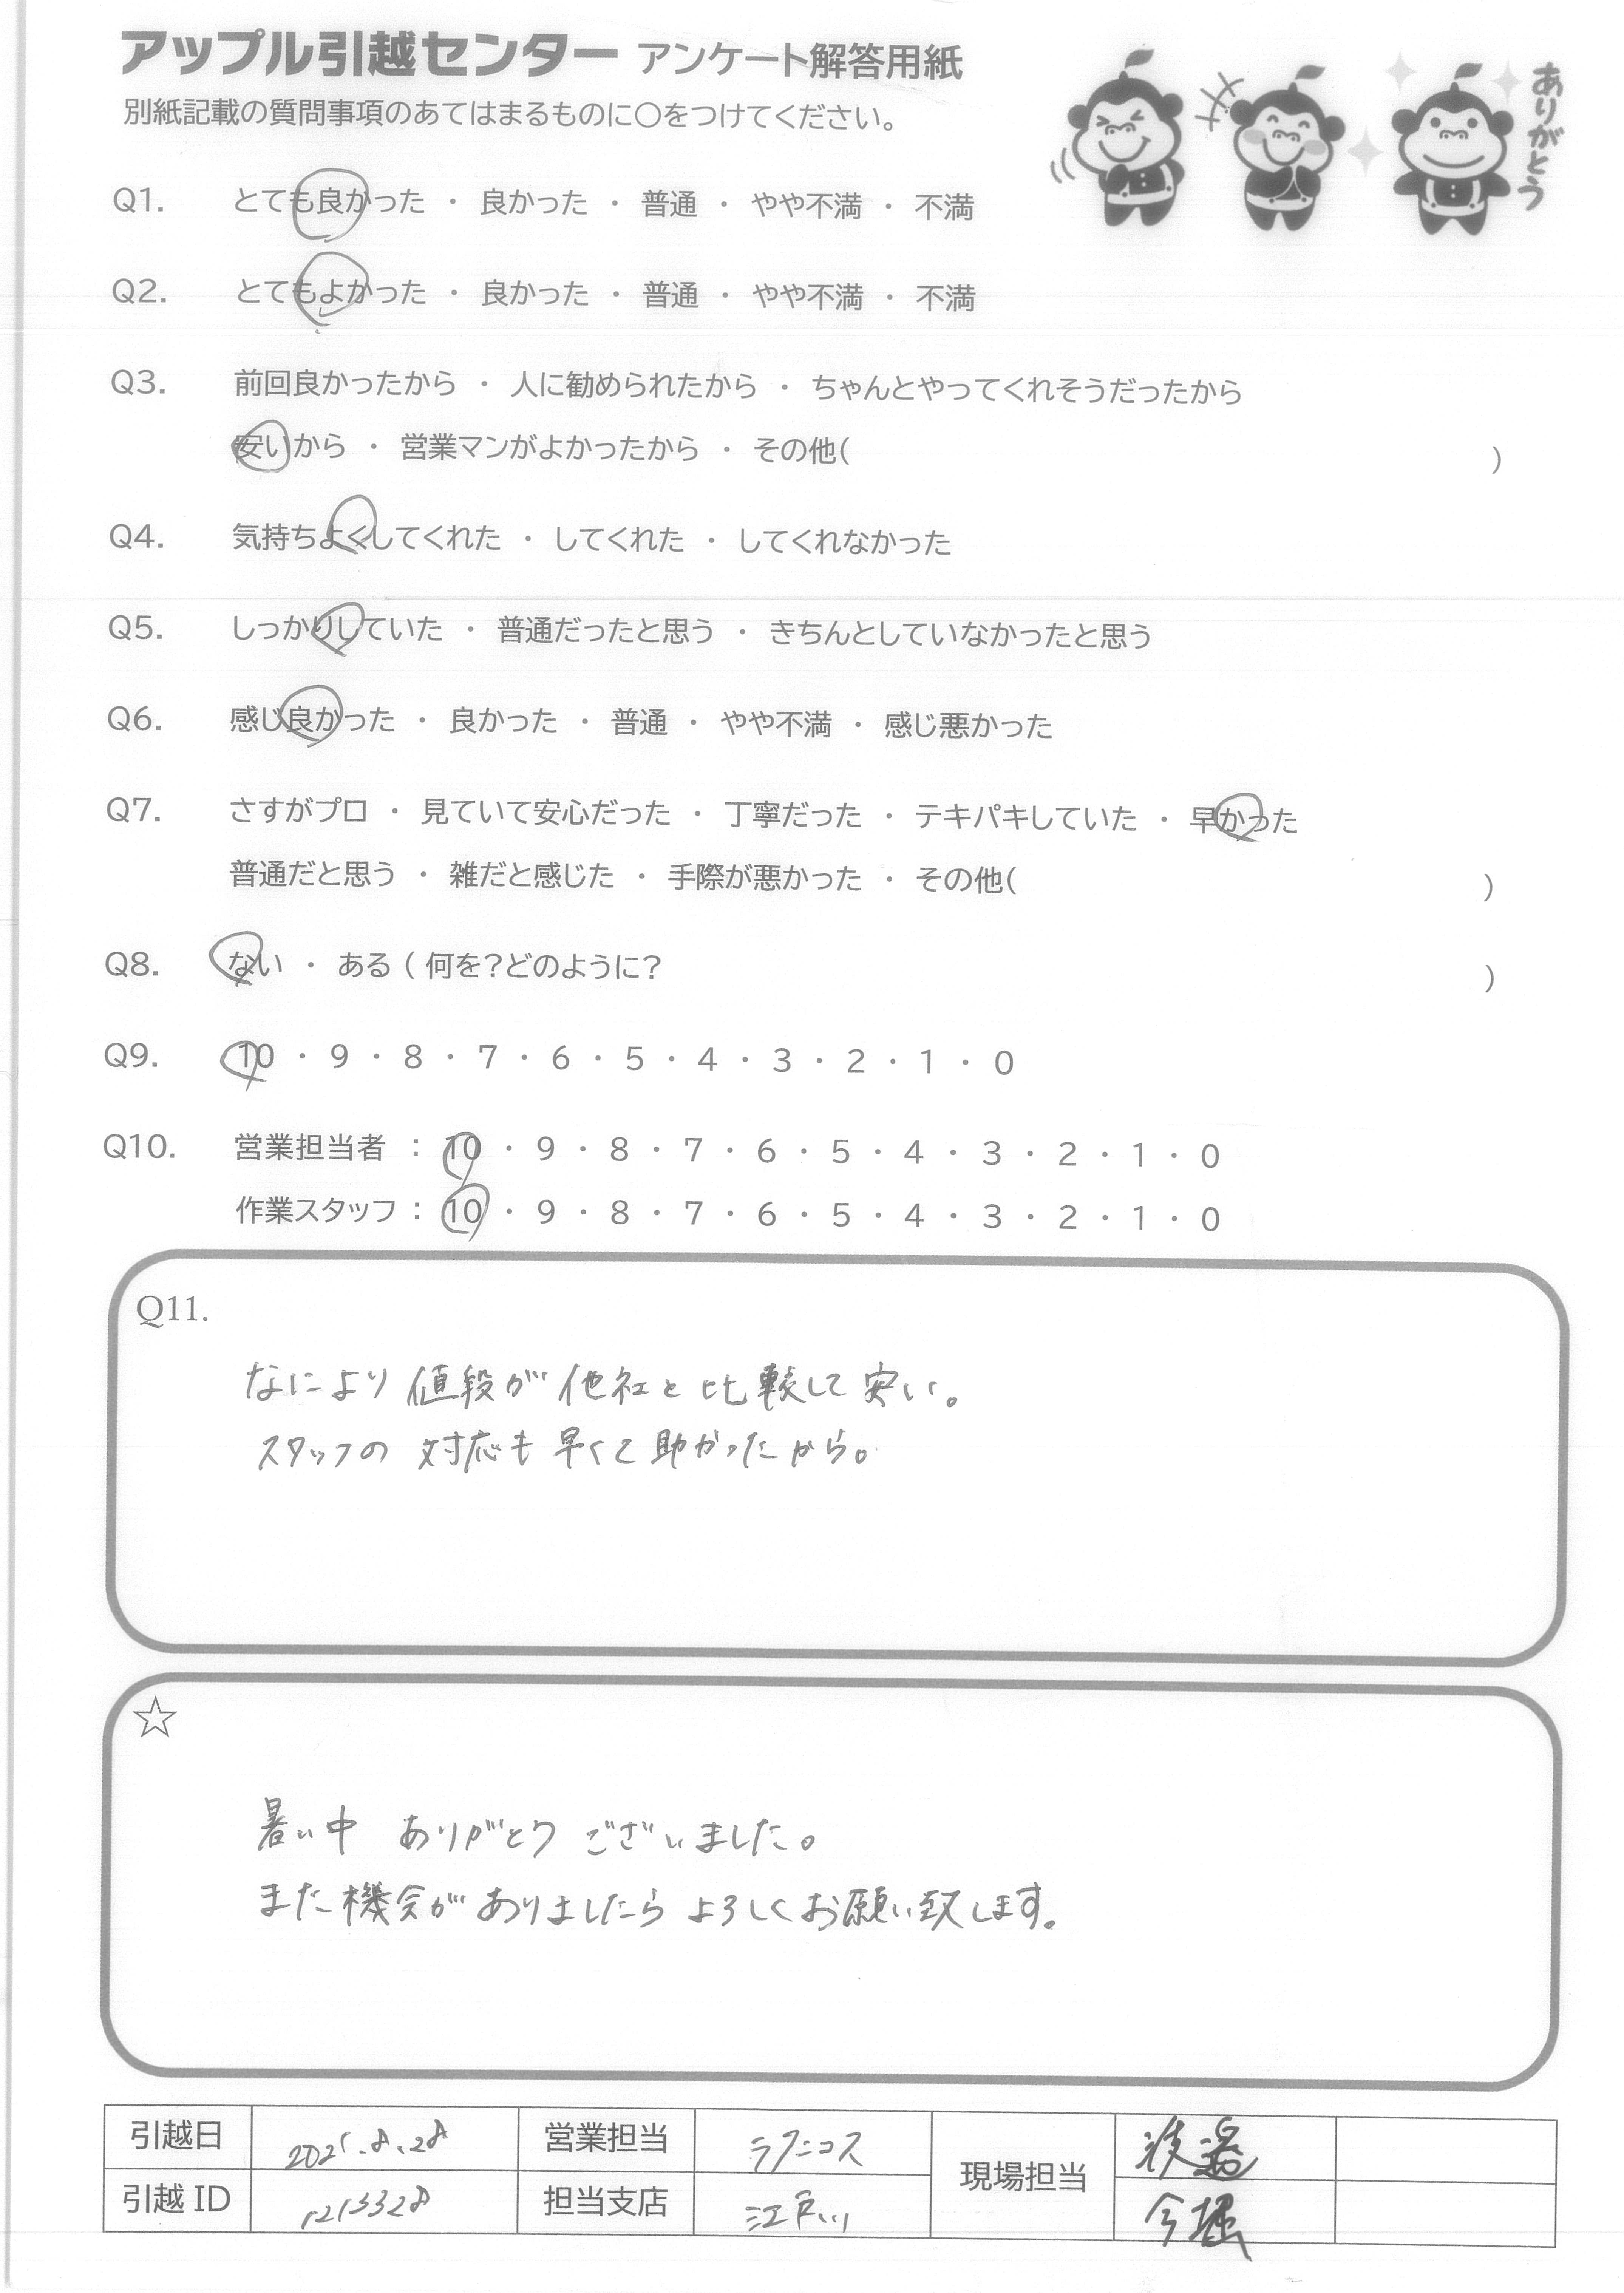 アップル引越センター アンケート解答用紙
別紙記載の質問事項のあてはまるものに○をつけてください。
ありがとう
Q1. とても良かった ・ 良かった ・ 普通 ・ やや不満 ・ 不満
Q2. とてもよかった ・ 良かった ・ 普通 ・ やや不満 ・ 不満
Q3. 前回良かったから ・ 人に勧められたから ・ ちゃんとやってくれそうだったから
安いから ・ 営業マンがよかったから ・ その他( )
Q4. 気持ちよくしてくれた ・ してくれた ・ してくれなかった
Q5. しっかりしていた ・ 普通だったと思う ・ きちんとしていなかったと思う
Q6. 感じ良かった ・ 良かった ・ 普通 ・ やや不満 ・ 感じ悪かった
Q7. さすがプロ ・ 見ていて安心だった ・ 丁寧だった ・ テキパキしていた ・ 早かった
普通だと思う ・ 雑だと感じた ・ 手際が悪かった ・ その他( )
Q8. ない ・ ある ( 何を?どのように? )
Q9. 10 ・ 9 ・ 8 ・ 7 ・ 6 ・ 5 ・ 4 ・ 3 ・ 2 ・ 1 ・ 0
Q10. 営業担当者 : 10 ・ 9 ・ 8 ・ 7 ・ 6 ・ 5 ・ 4 ・ 3 ・ 2 ・ 1 ・ 0
作業スタッフ : 10 ・ 9 ・ 8 ・ 7 ・ 6 ・ 5 ・ 4 ・ 3 ・ 2 ・ 1 ・ 0
Q11.
なにより値段が他社と比較して安い。
スタッフの対応も早くて助かったから。
☆
暑い中 ありがとうございました。
また機会がありましたらよろしくお願い致します。
引越日 2025.8.28 営業担当 ラクニコス 現場担当 渡邊
引越 ID 1213328 担当支店 江戸川 今堀